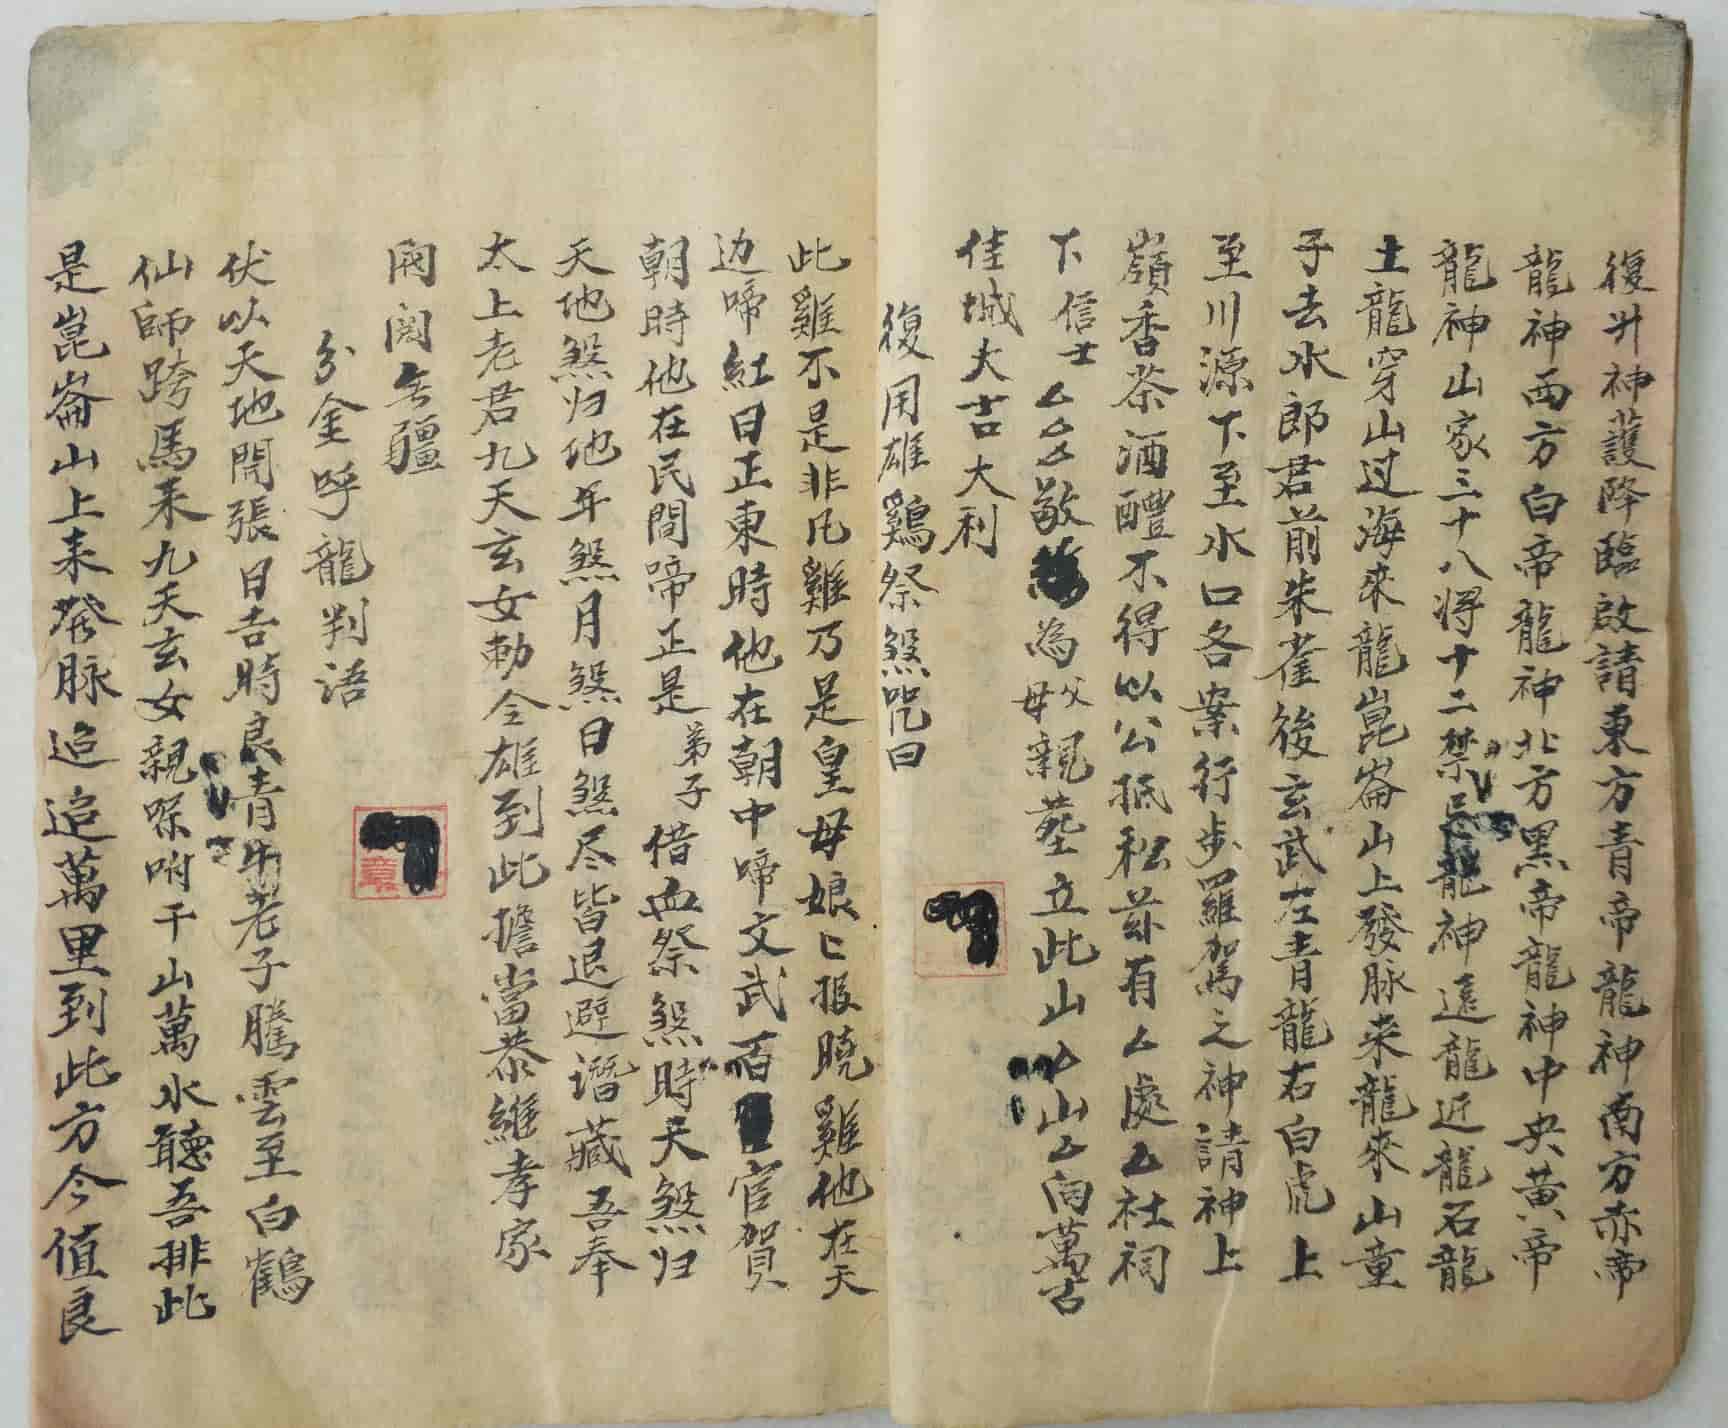 復升神護降臨啟請東方青帝龍神南方赤帝
龍神西方白帝龍神北方黑帝龍神中央黃帝
龍神山家三十八將十二禁忌龍神遠龍近龍石龍
土龍穿山过海來龍崑崙山上發脉来龍來山童
子去水郎君前朱雀後玄武左青龍右白虎上
至川源下至水口各案行步羅駕之神請神上
嶺香茶酒醴不得以公抵私茲有厶處厶社祠
下信士厶厶厶敬為父母親塟立此山厶山厶向萬古
佳城大吉大利
復用雄鷄祭煞咒曰
此雞不是非凡雞乃是皇母娘〻报曉雞他在天
边啼紅日正東時他在朝中啼文武百官賀
朝時他在民間啼正是弟子借血祭煞時天煞归
天地煞归地年煞月煞日煞尽皆退避潛藏吾奉
太上老君九天玄女勅令雄到此擔當恭維孝家
闷闼无疆
分金呼龍判语
伏以天地開張日吉時良青牛老子騰雲至白鶴
仙師跨馬来九天玄女親嘜咐千山萬水聽吾排此
是崑崙山上来發脉迢迢萬里到此方今值良
章